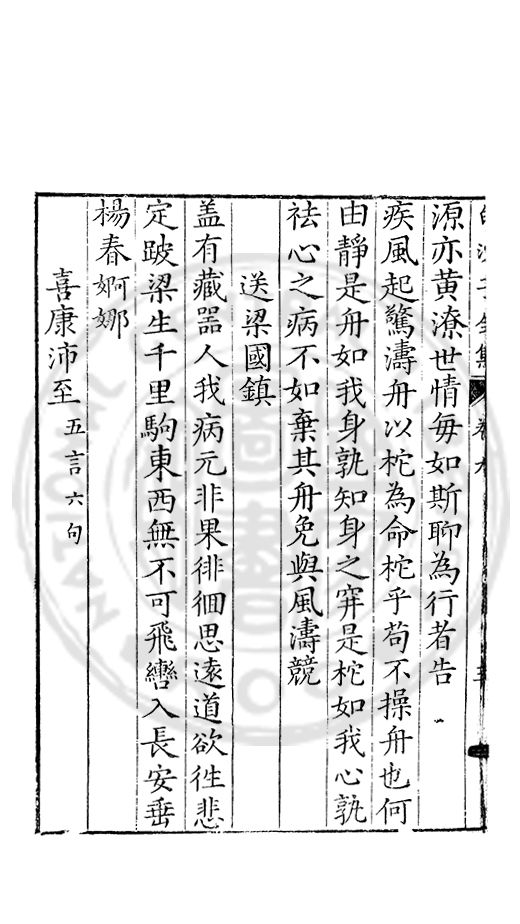 白沙子全集 卷九
源亦黄潦世情每如斯聊為行者告
疾風起驚濤舟以柁為命柁乎苟不操舟也何
由靜是舟如我身孰知身之穽是柁如我心孰
祛心之病不如棄其舟免與風濤競
送梁國鎮
盖有藏器人我病元非果徘徊思遠道欲徃悲
定跛梁生千里駒東西無不可飛轡入長安垂
楊春婀娜
喜康沛至五言六句